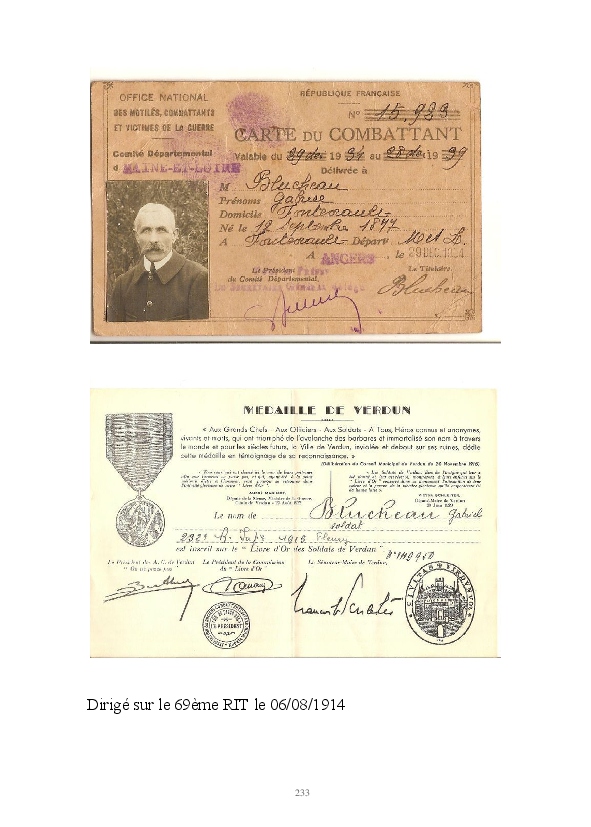 OFFICE NATIONAL
DES MUTILÉS, COMBATTANTS
ET VICTIMES DE LA GUERRE
Comité Départemental
d MAINE-ET-LOIRE
RÉPUBLIQUE FRANÇAISE
N° 15.923
CARTE DU COMBATTANT
Valable du 29 dec 1934 au 28 dec 1939
Délivrée à
M Blucheau
Prénoms
Domicile Fontevrault
Né le 12 Septembre 1877
A Fontevrault Départ M et L.
A ANGERS le 29 DEC. 1934
Le Président
du Comité Départemental,
Le Titulaire,
Blucheau
MEDAILLE DE VERDUN
« Aux Grands Chefs - Aux Officiers - Aux Soldats - A Tous, Héros connus et anonymes,
vivants et morts, qui ont triomphé de l'avalanche des barbares et immortalisé son nom à travers
le monde et pour les siècles futurs, la Ville de Verdun, inviolée et debout sur ses ruines, dédie
cette médaille en témoignage de sa reconnaissance. »
(Délibération du Conseil Municipal de Verdun du 20 Novembre 1916)
Le nom de Blucheau Gabriel
soldat
1916 Fleury
est inscrit sur le " Livre d'Or des Soldats de Verdun "
Le Président des A. C. de Verdun
" On ne passe pas "
Le Président de la Commission
du " Livre d'Or
Le Sénateur-Maire de Verdun,
Dirigé sur le 69ème RIT le 06/08/1914
233